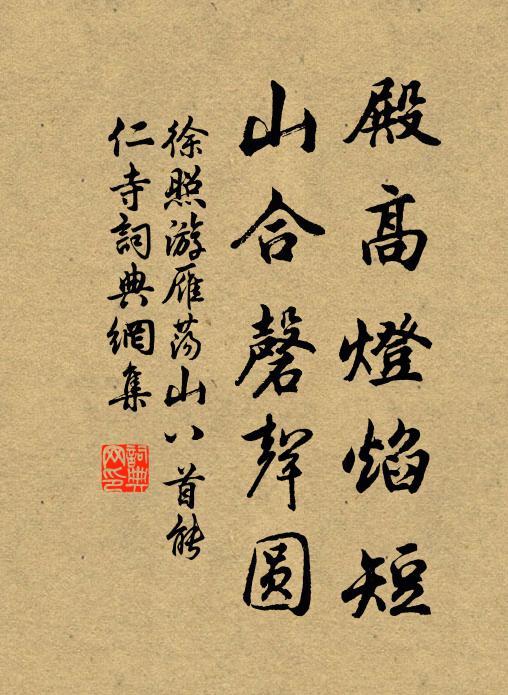 殿高燈焰短
山合磬聲圓
徐照游雁蕩山八首能
仁寺詞典網集
詞典
网印